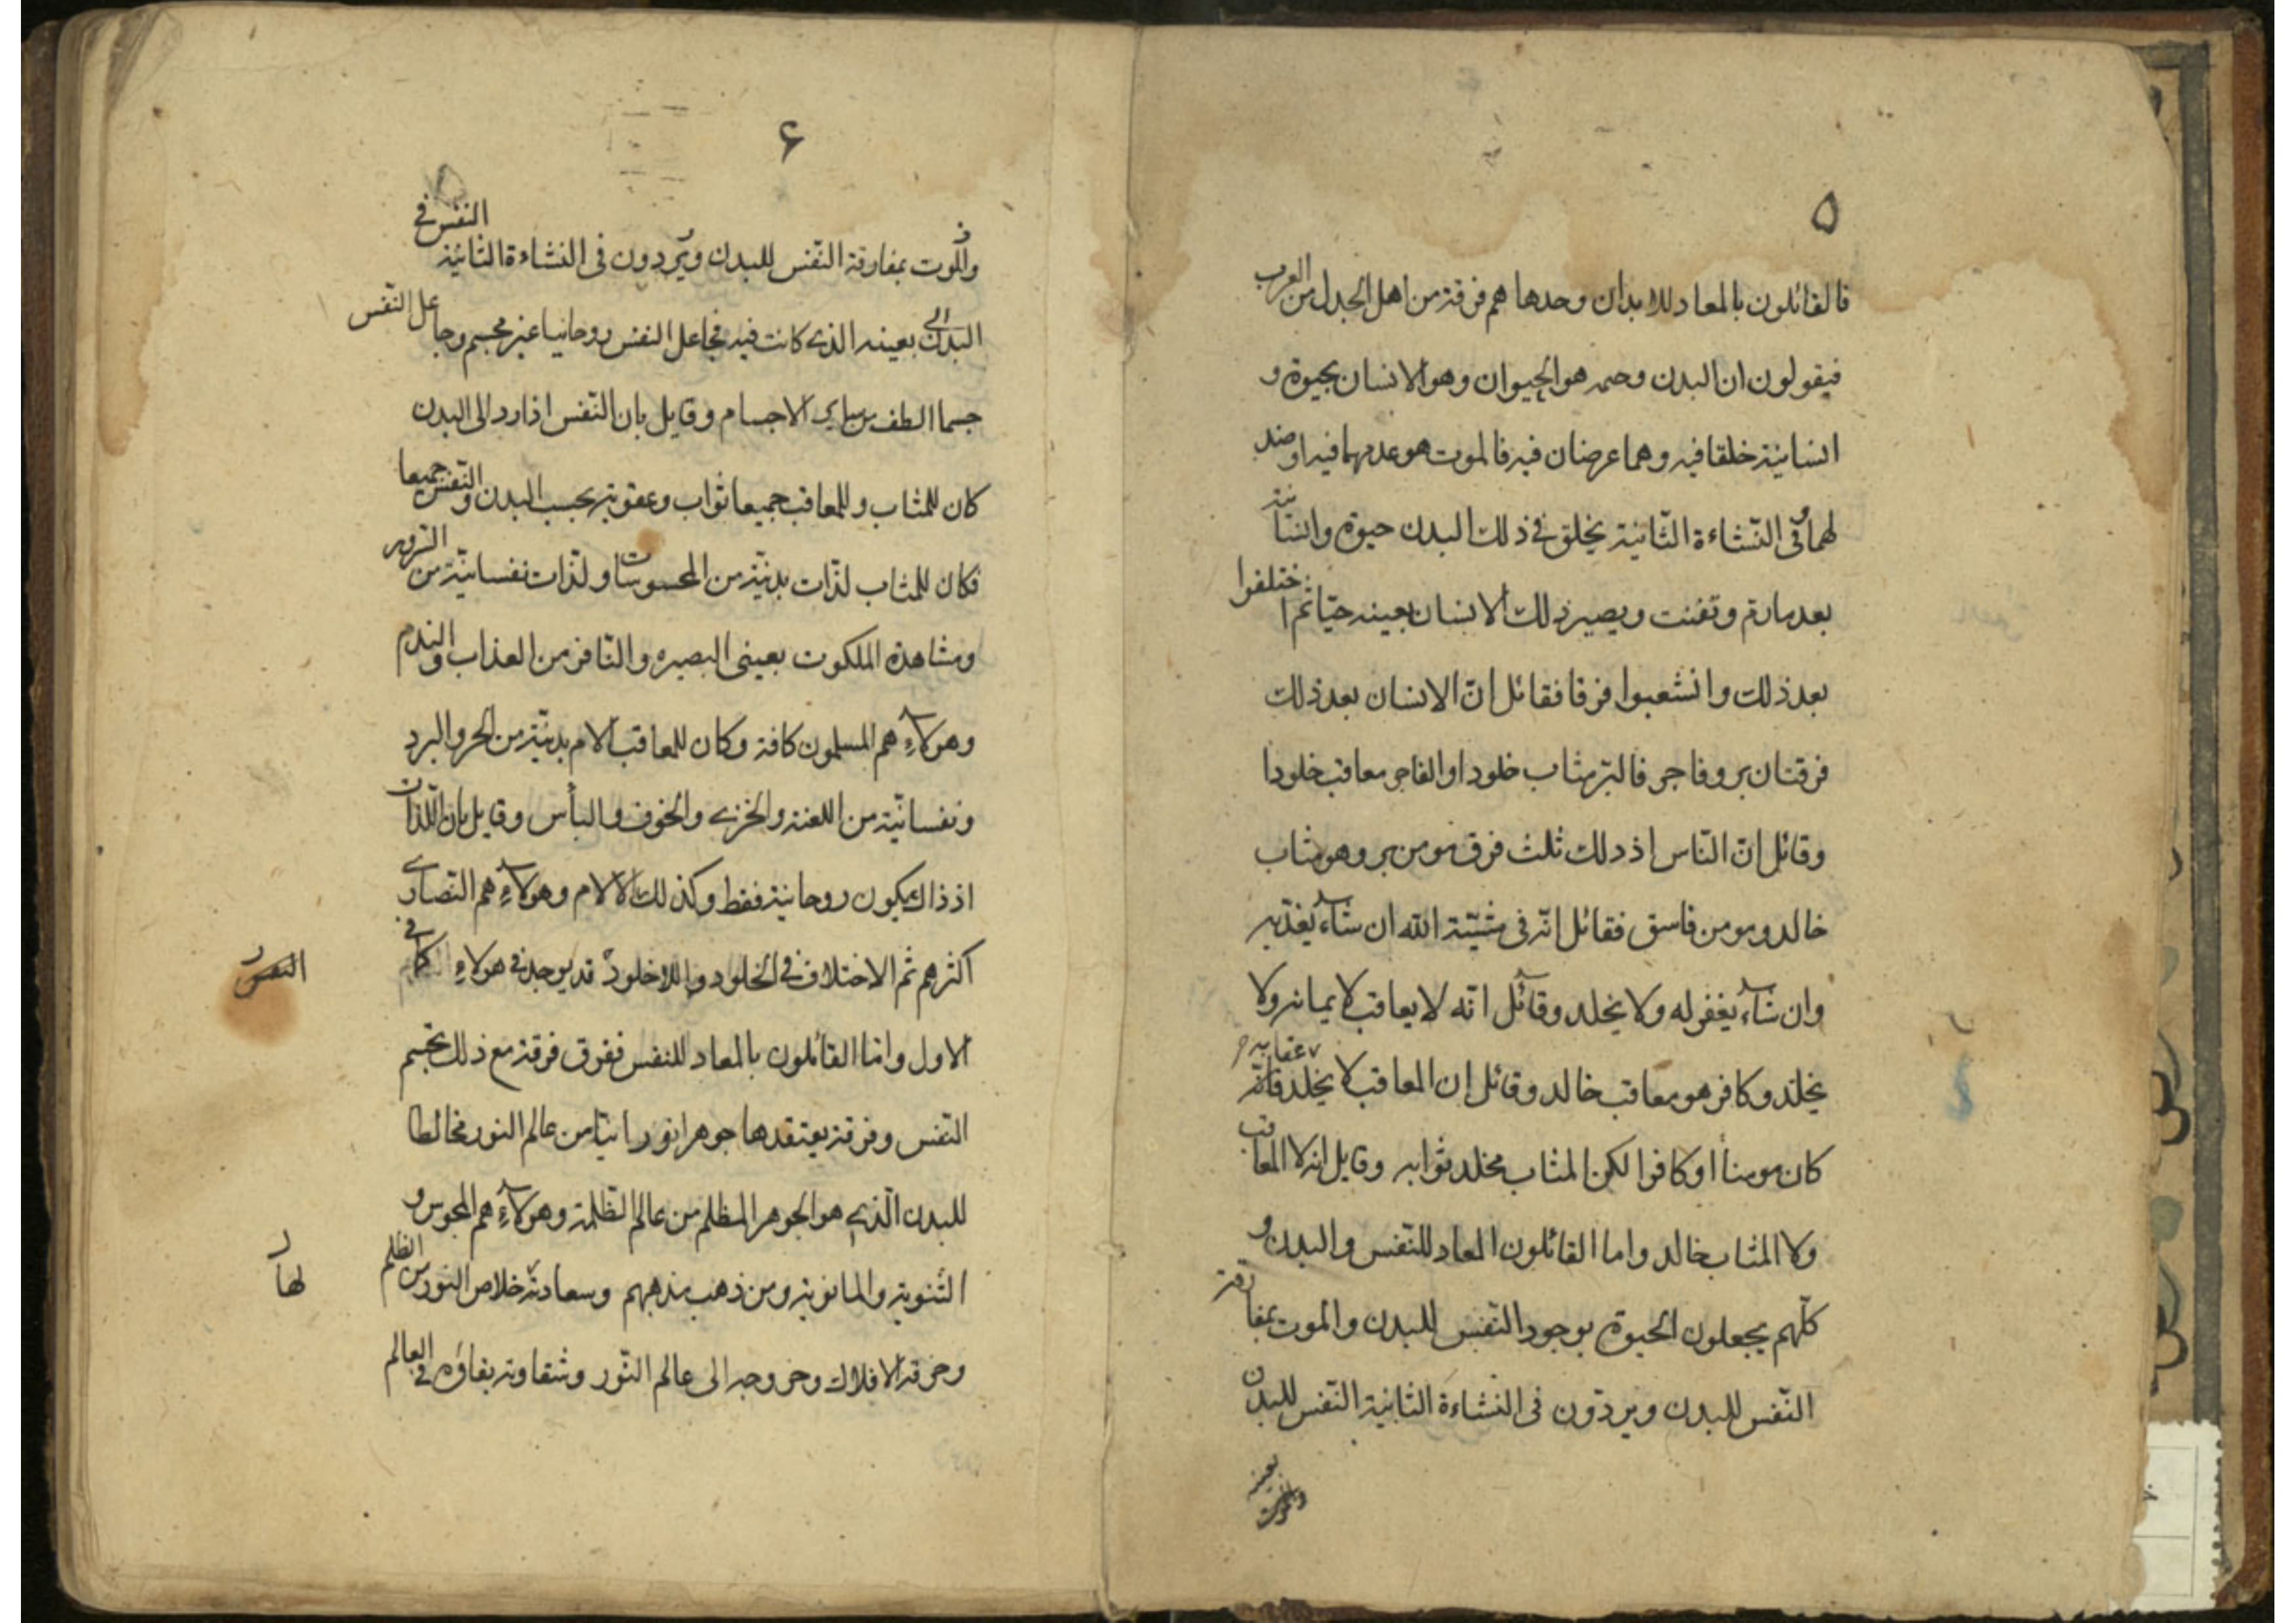 ٥
فالقائلون بالمعاد للابدان وحدها هم فرقة من اهل الجدل من العرب
فيقولون ان البدن وحده هو الحيوان وهو الانسان بحيوة و
انسانية خلقا فيه وهما عرضان فيه فالموت هو عدمهما فيه او ضد
لهما وفى النّشاءة الثّانية يخلق فى ذلك البدن حيوة وانسانية
بعد مارمّ وتفتت ويصير ذلك الانسان بعينه حيّا ثم اختلفوا
بعد ذلك وانشعبوا فرقا فقائل انّ الانسان بعد ذلك
فرقتان بر وفاجر فالبرّ مثاب خلودا والفاجر معاقب خلودا
وقائل انّ النّاس اذ ذلك ثلث فرق مومن بر وهو مثاب
خالد ومومن فاسق فقائل انّه فى مشيّة الله ان شاء يعذّبه
وان شاء يغفر له ولا يخلد وقائل انّه لا يعاقب لايمانه ولا
يخلد وكافر هو معاقب خالد وقائل ان المعاقب لا يخلد عقابه فانّه
كان مومنا او كافرا لكن المثاب مخلد ثوابه وقايل انه لا المعاقب
ولا المثاب خالد واما القائلون المعاد للنّفس والبدن و
كلّهم يجعلون الحيوة بوجود النّفس للبدن والموت بمفارقة
النّفس للبدن ويردّون فى النّشاءة الثّانية النّفس للبدن
بعينه
والموت
٦
والموت بمفارقة النّفس للبدن ويردون فى النشاءة الثانية النفس فى
البدن الى بعينه الذى كانت فيه فجاعل النفس روحانيا غير مجسم وجاعل النّفس
جسما الطف من ساير الاجسام وقايل بان النّفس اذا رد الى البدن
كان للمثاب وللمعاقب جميعا ثواب وعقوبة بحسب البدن والنّفس جميعا
فكان للمثاب لذّات بدنيّة من المحسوسات ولذّات نفسانيّة من السّرور
ومشاهدة الملكوت بعينى البصيره والنّافر من العذاب والندم
وهولاء هم المسلمون كافة وكان للمعاقب آلام بدنيّة من الحر والبرد
ونفسانيّة من اللعنة والخزى والخوف والبأس وقايل بان اللّذات
اذ ذاك يكون روحانية فقط وكذلك الالام وهولاء هم النّصارى
اكثرهم ثم الاختلاف فى الخلود واللاخلود قد يوجد فى هولاء كما فى
الاول وامّا القائلون بالمعاد للنفس ففرق فرقة مع ذلك تجسّم
النّفس وفرقة يعتقدها جوهرا نورانيّا من عالم النور مخالطا
للبدن الّذى هو الجوهر المظلم من عالم الظّلمة وهولاء هم المجوس و
الثّنوية والمانوية ومن ذهب مذهبهم وسعادته خلاص النور من الظلم
لها
وخرقه الافلاك وخروجه الى عالم النّور وشقاوته بقاؤه فى العالم